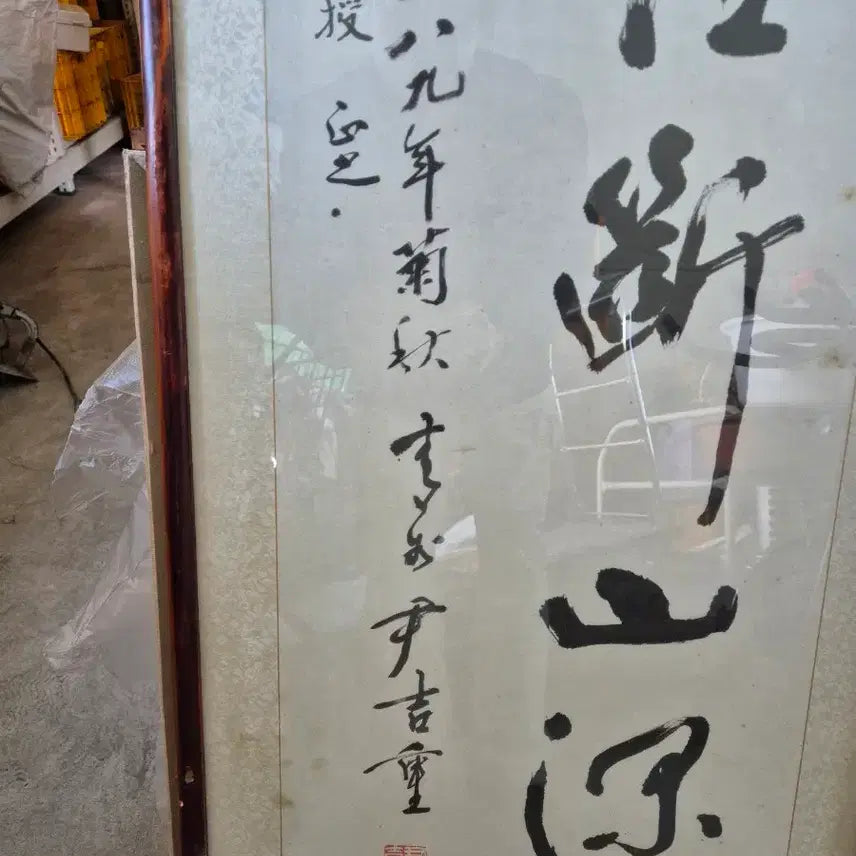 斷山深
八九年菊秋 青谷 尹吉重
授 正之